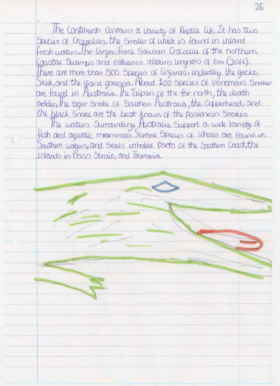 26
The Continent contains a variety of Reptile life. It has two
Species of Crocodiles, the Smaller of which is found in inland
fresh water. The larger, fierce Saurian Crocodile of the northern
Coastal Swamps and estuaries attains lengths of 6m (20ft).
There are more than 500 Species of lizards including the gecko,
skink, and the giant goanna. About 100 Species of Venomous Snakes
are found in Australia. The Taipan of the far north, the death
adder, the tiger Snake of Southern Australia, the Copperhead, and
the black Snake are the best known of the Poisonous Snakes.
The waters Surrounding Australia Support a wide variety of
fish and aquatic mammals. Several Species of Whales are found in
Southern waters, and Seals inhabit Parts of the Southern Coast, the
islands in Bass Strait, and Tasmania.